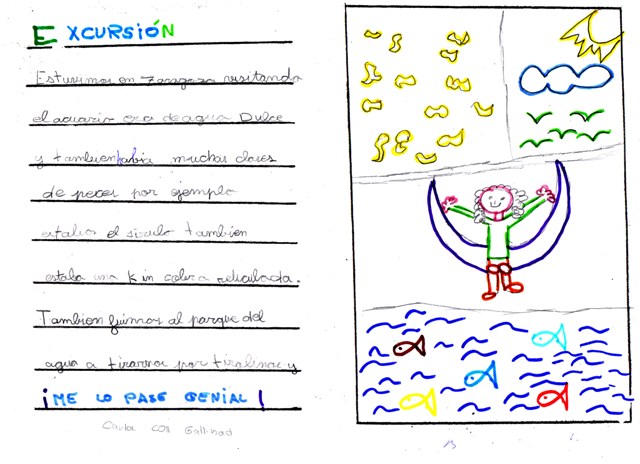 EXCURSIÓN
Estuvimos en Zaragoza visitando
el acuario era de agua Dulce
y tambien habia muchas clases
de peces por ejemplo
estaba el siluro tambien
estaba una K in cobra reticulada.
Tambien fuimos al parque del
agua a tirarnos por tirolinas y
¡ME LO PASE GENIAL!